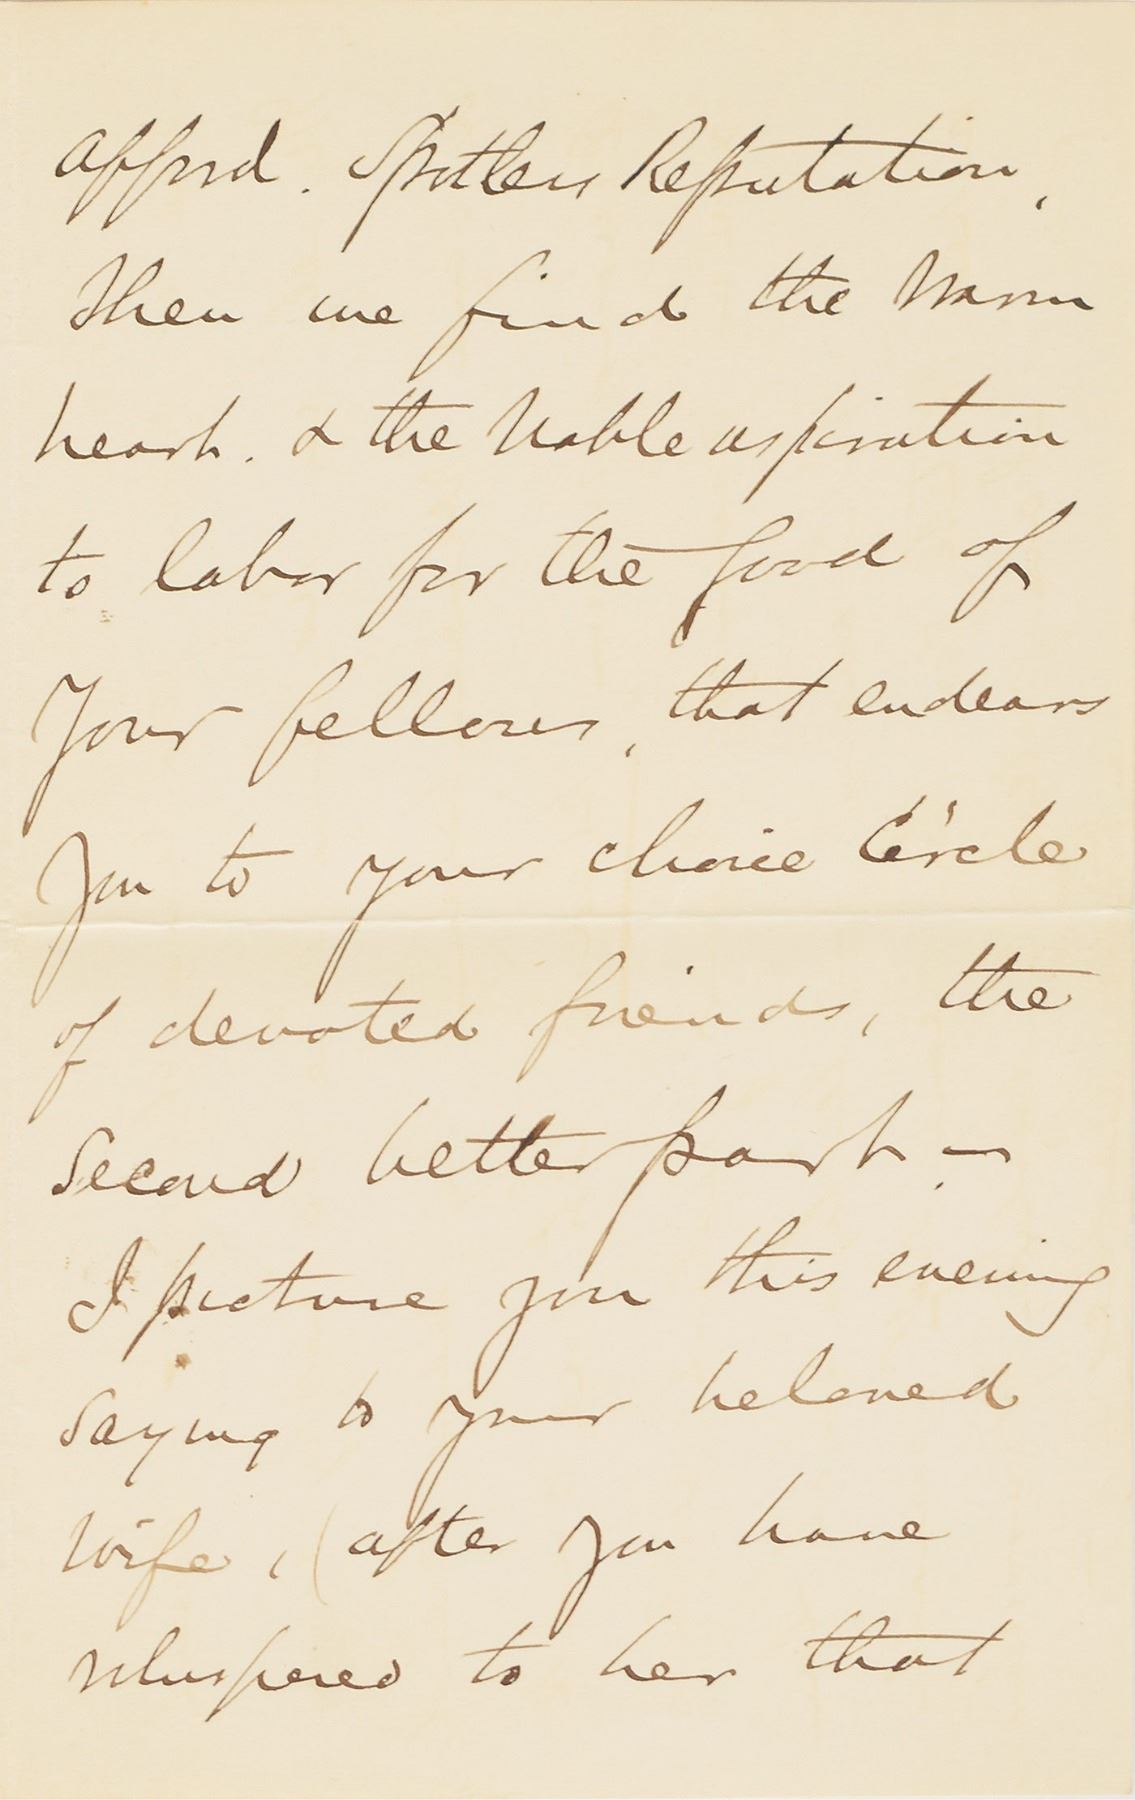 afford. Spotless Reputation,
then we find the Warm
heart. & the Noble aspiration
to labor for the good of
Your fellows, that endears
you to your choice Circle
of devoted friends, the
Second better part —
I picture you this evening
saying to your beloved
Wife, (after you have
whispered to her that